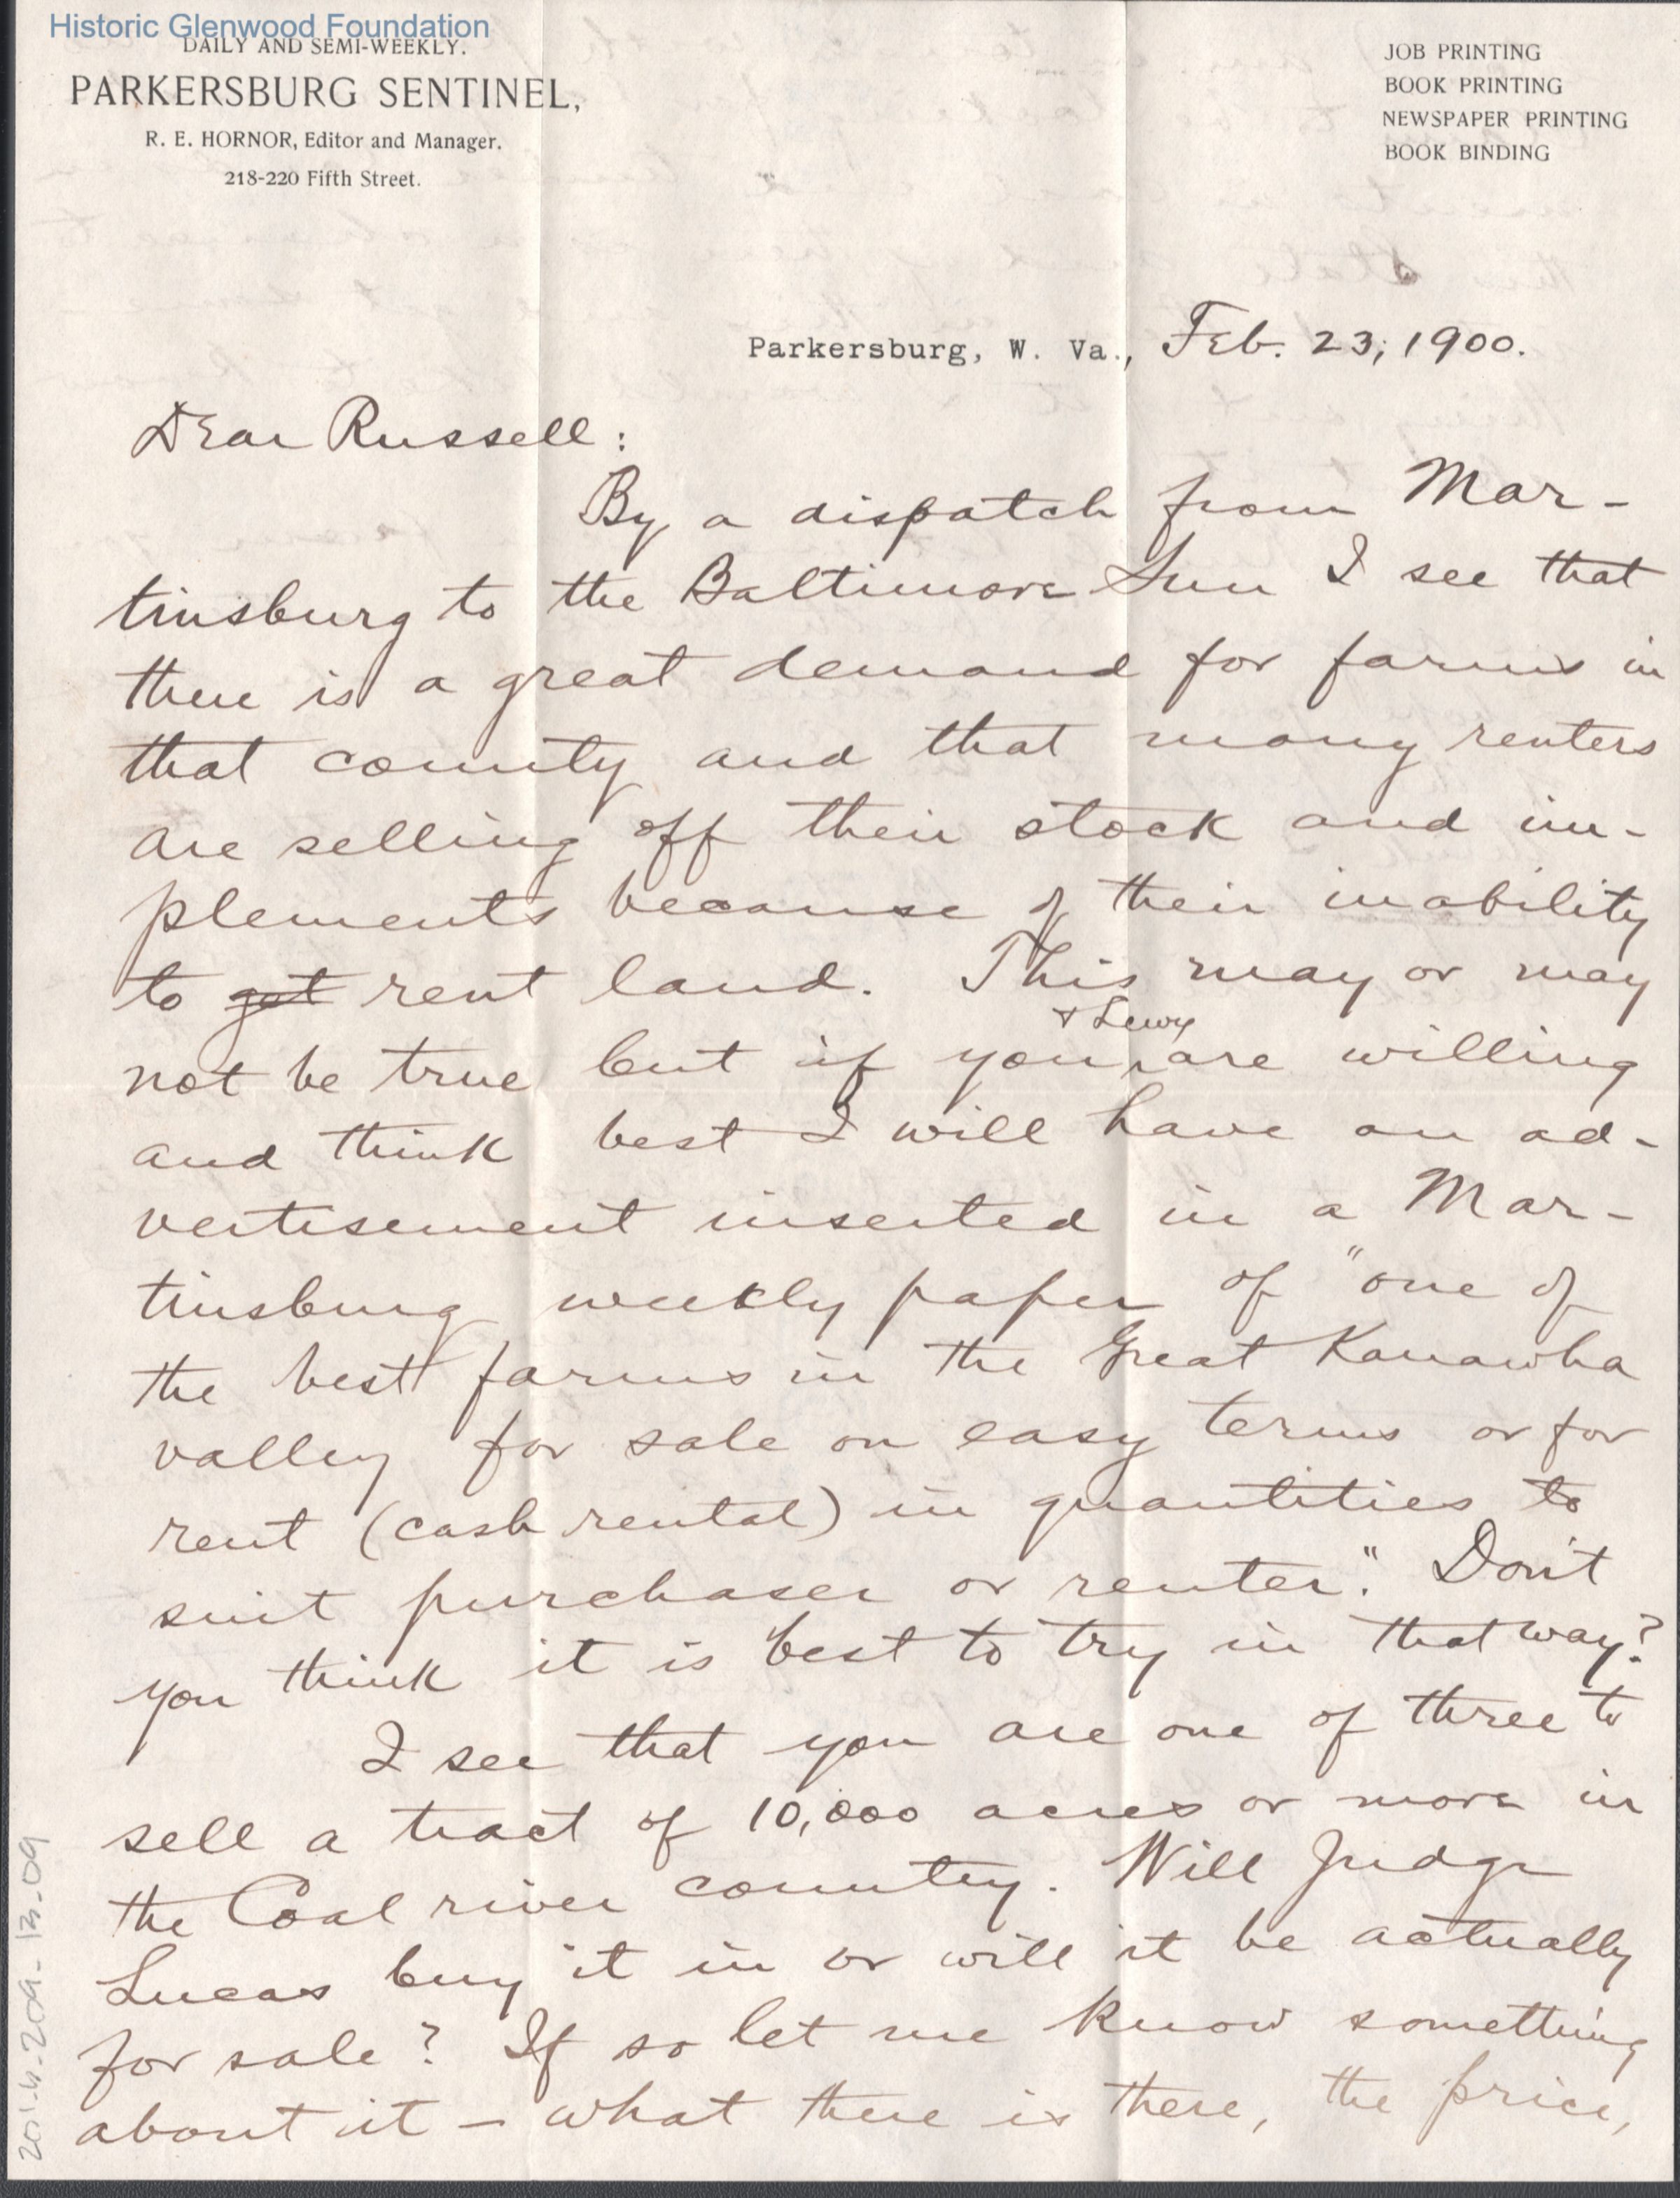 Historic Glenwood Foundation
DAILY AND SEMI-WEEKLY.
PARKERSBURG SENTINEL,
R. E. HORNOR, Editor and Manager.
218-220 Fifth Street.
JOB PRINTING
BOOK PRINTING
NEWSPAPER PRINTING
BOOK BINDING
Parkersburg, W. Va., Feb. 23, 1900.
Dear Russell:
By a dispatch from Mar-
tinsburg to the Baltimore Sun I see that
there is a great demand for farms in
that county and that many renters
are selling off their stock and im-
plements because of their inability
to get rent land. This may or may
& Lewy
not be true but if you are willing
and think best I will have an ad-
vertisement inserted in a Mar-
tinsburg weekly paper of "one of
the best farms in the Great Kanawha
valley for sale on easy terms or for
rent (cash rental) in quantities to
suit purchaser or renter." Don't
you think it is best to try in that way?
I see that you are one of three to
sell a tract of 10,000 acres or more in
the Coal river country. Will Judge
Lucas buy it in or will it be actually
for sale? If so let me know something
about it – what there is there, the price,